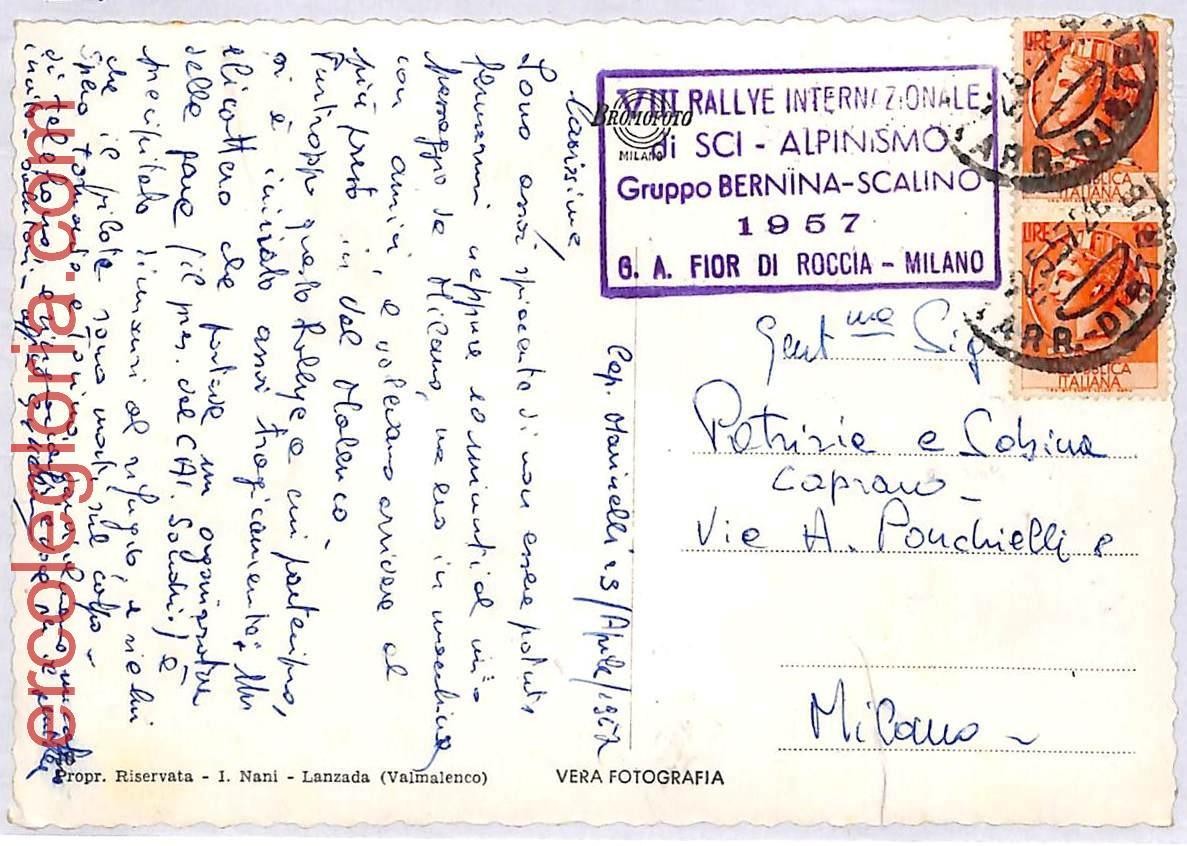 Carissime,
Sono assai spiacente di non essere potuto
fermarmi neppure 10 minuti al mio
passaggio da Milano, ma ero in macchina
con amici, e volevano arrivare al
più presto in Val Malenco.
Purtroppo questo Rallye a cui partecipo,
si è iniziato assai tragicamente: Un
elicottero che portava un organizzatore
della gara (il pres. del CAI. Sondrio) è
precipitato dinanzi al rifugio, e sia lui
che il pilota sono morti sul colpo -
Spero tornando
di telefonarvi e
Cap. Marinelli 23/Aprile/1957
BROMOFOTO
MILANO
XVIII RALLYE INTERNAZIONALE
di SCI - ALPINISMO
Gruppo BERNINA-SCALINO
1957
G. A. FIOR DI ROCCIA - MILANO
LIRE
REPUBBLICA
ITALIANA
LIRE 10
REPUBBLICA
ITALIANA
ARR.-DIST
ARR.-DIST
Gent.me Sig
Patrizia e Sabina
Caprano -
Via A. Ponchielli 8
Milano -
Propr. Riservata - I. Nani - Lanzada (Valmalenco)
VERA FOTOGRAFIA
ercolegloria.com